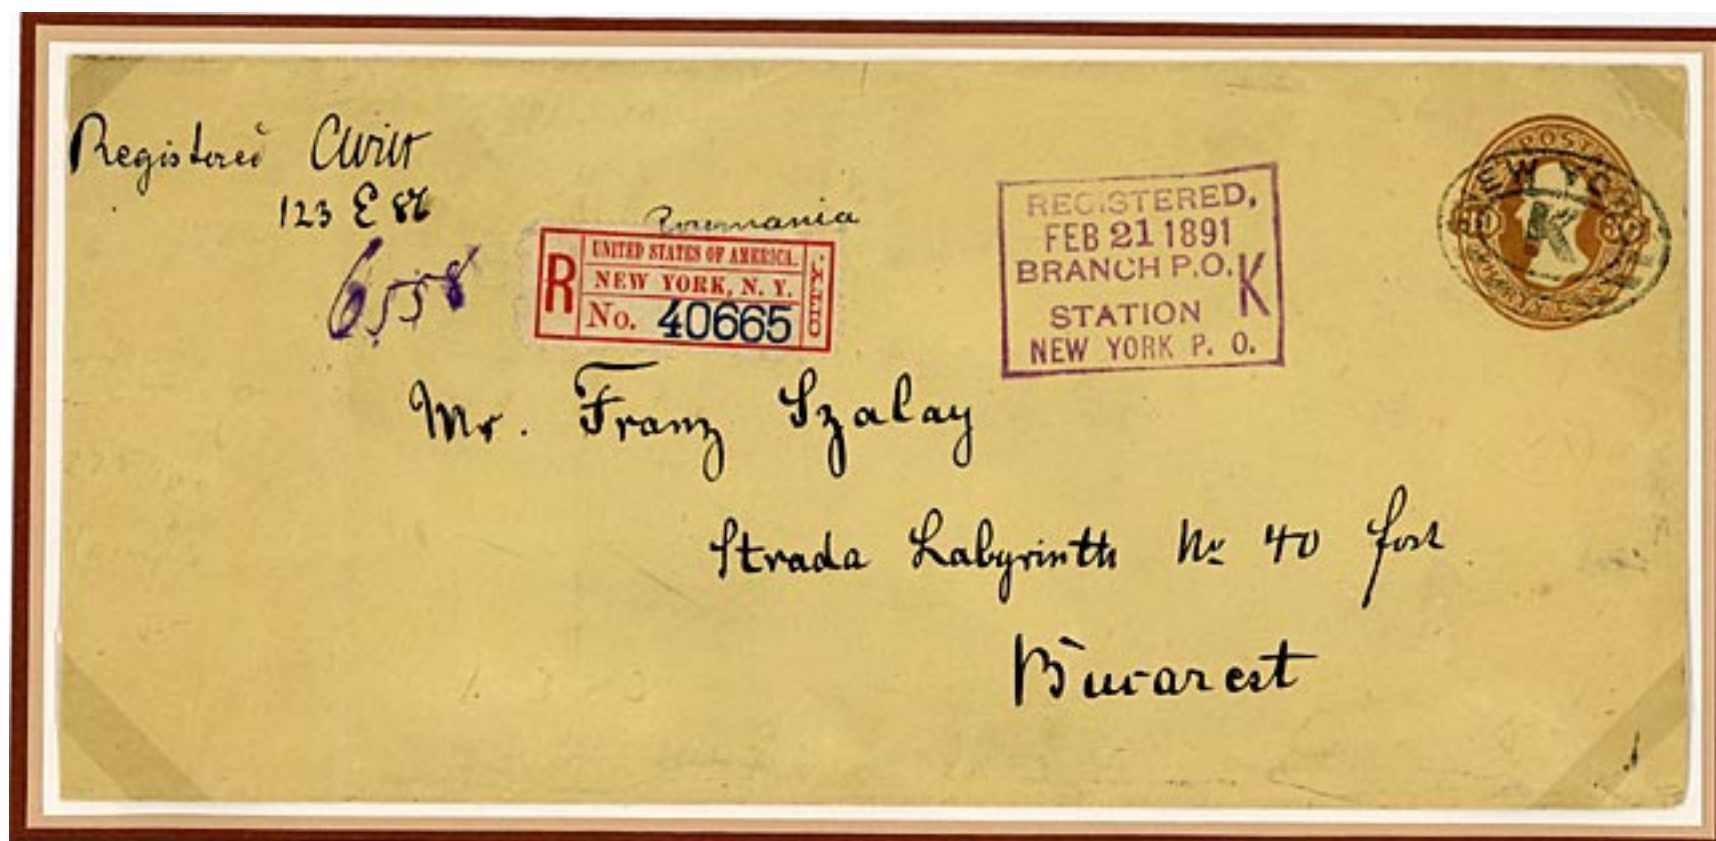 Registered
123 E 86
6558
Roumania
R
UNITED STATES OF AMERICA.
NEW YORK, N. Y.
No. 40665
REGISTERED,
FEB 21 1891
BRANCH P.O. K
STATION
NEW YORK P. O.
NEW YORK
K
Mr. Franz Szalay
Strada Labyrinth No 40 fost
Bucarest